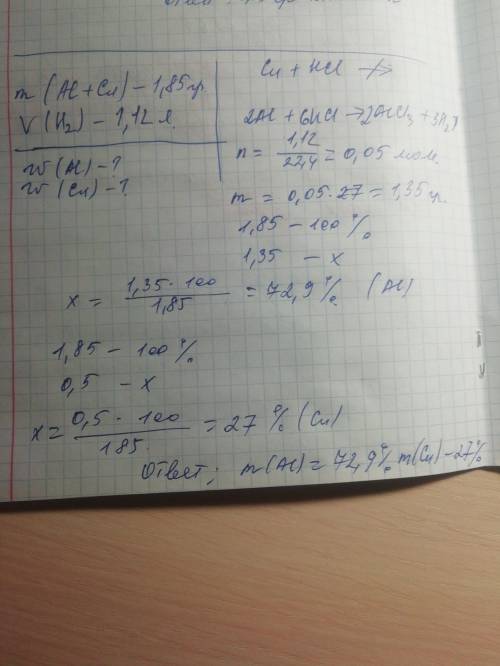 m (Al + Cu) – 1,85 гр.
V (H₂) – 1,12 л.
w (Al) – ?
w (Cu) – ?
Cu + HCl ↛
2Al + 6HCl → 2AlCl₃ + 3H₂↑
n = 1,12 / 22,4 = 0,05 моль.
m = 0,05 · 27 = 1,35 гр.
1,85 – 100 %
1,35 – x
x = 1,35 · 100 / 1,85 = 72,9 % (Al)
1,85 – 100 %
0,5 – x
x = 0,5 · 100 / 185. = 27 % (Cu)
Ответ: m (Al) = 72,9 % m (Cu) – 27 %